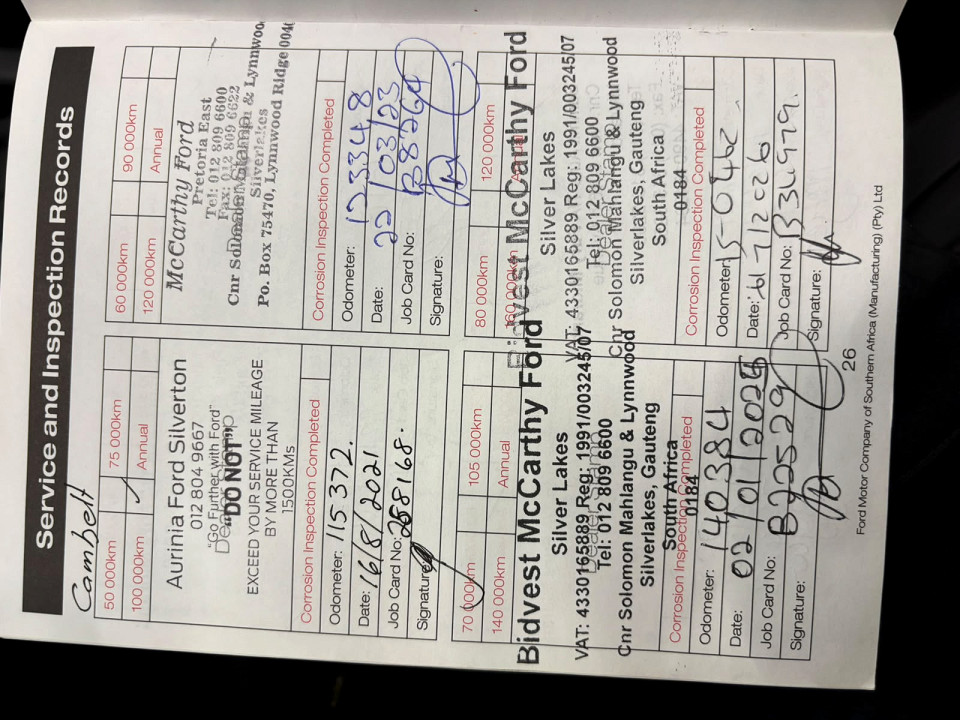 Service and Inspection Records
Cambelt
50 000km 75 000km
100 000km Annual
Aurinia Ford Silverton
012 804 9667
"Go Further with Ford"
"DO NOT"
EXCEED YOUR SERVICE MILEAGE
BY MORE THAN
1500KMs
Corrosion Inspection Completed
Odometer: 115372.
Date: 16/8/2021
Job Card No: 268168.
Signature:
60 000km 90 000km
120 000km Annual
McCarthy Ford
Pretoria East
Tel: 012 809 6600
Fax: 012 809 6622
Cnr Solomon & Lynnwood
Silverlakes
Po. Box 75470, Lynnwood Ridge 0040
Corrosion Inspection Completed
Odometer: 123348
Date: 22/03/23
Job Card No: B8264
Signature:
70 000km 105 000km
140 000km Annual
Bidvest McCarthy Ford
Silver Lakes
VAT: 4330165889 Reg: 1991/003245/07
Tel: 012 809 6600
Cnr Solomon Mahlangu & Lynnwood
Silverlakes, Gauteng
South Africa
0184
Corrosion Inspection Completed
Odometer: 140384
Date: 02/01/2025
Job Card No: B225529
Signature:
80 000km 120 000km
160 000km
Bidvest McCarthy Ford
Silver Lakes
VAT: 4330165889 Reg: 1991/003245/07
Tel: 012 809 6600
Dealer Stamp
Cnr Solomon Mahlangu & Lynnwood
Silverlakes, Gauteng
South Africa
0184
Corrosion Inspection Completed
Odometer:
Date:
Job Card No:
Signature:
26
Ford Motor Company of Southern Africa (Manufacturing) (Pty) Ltd